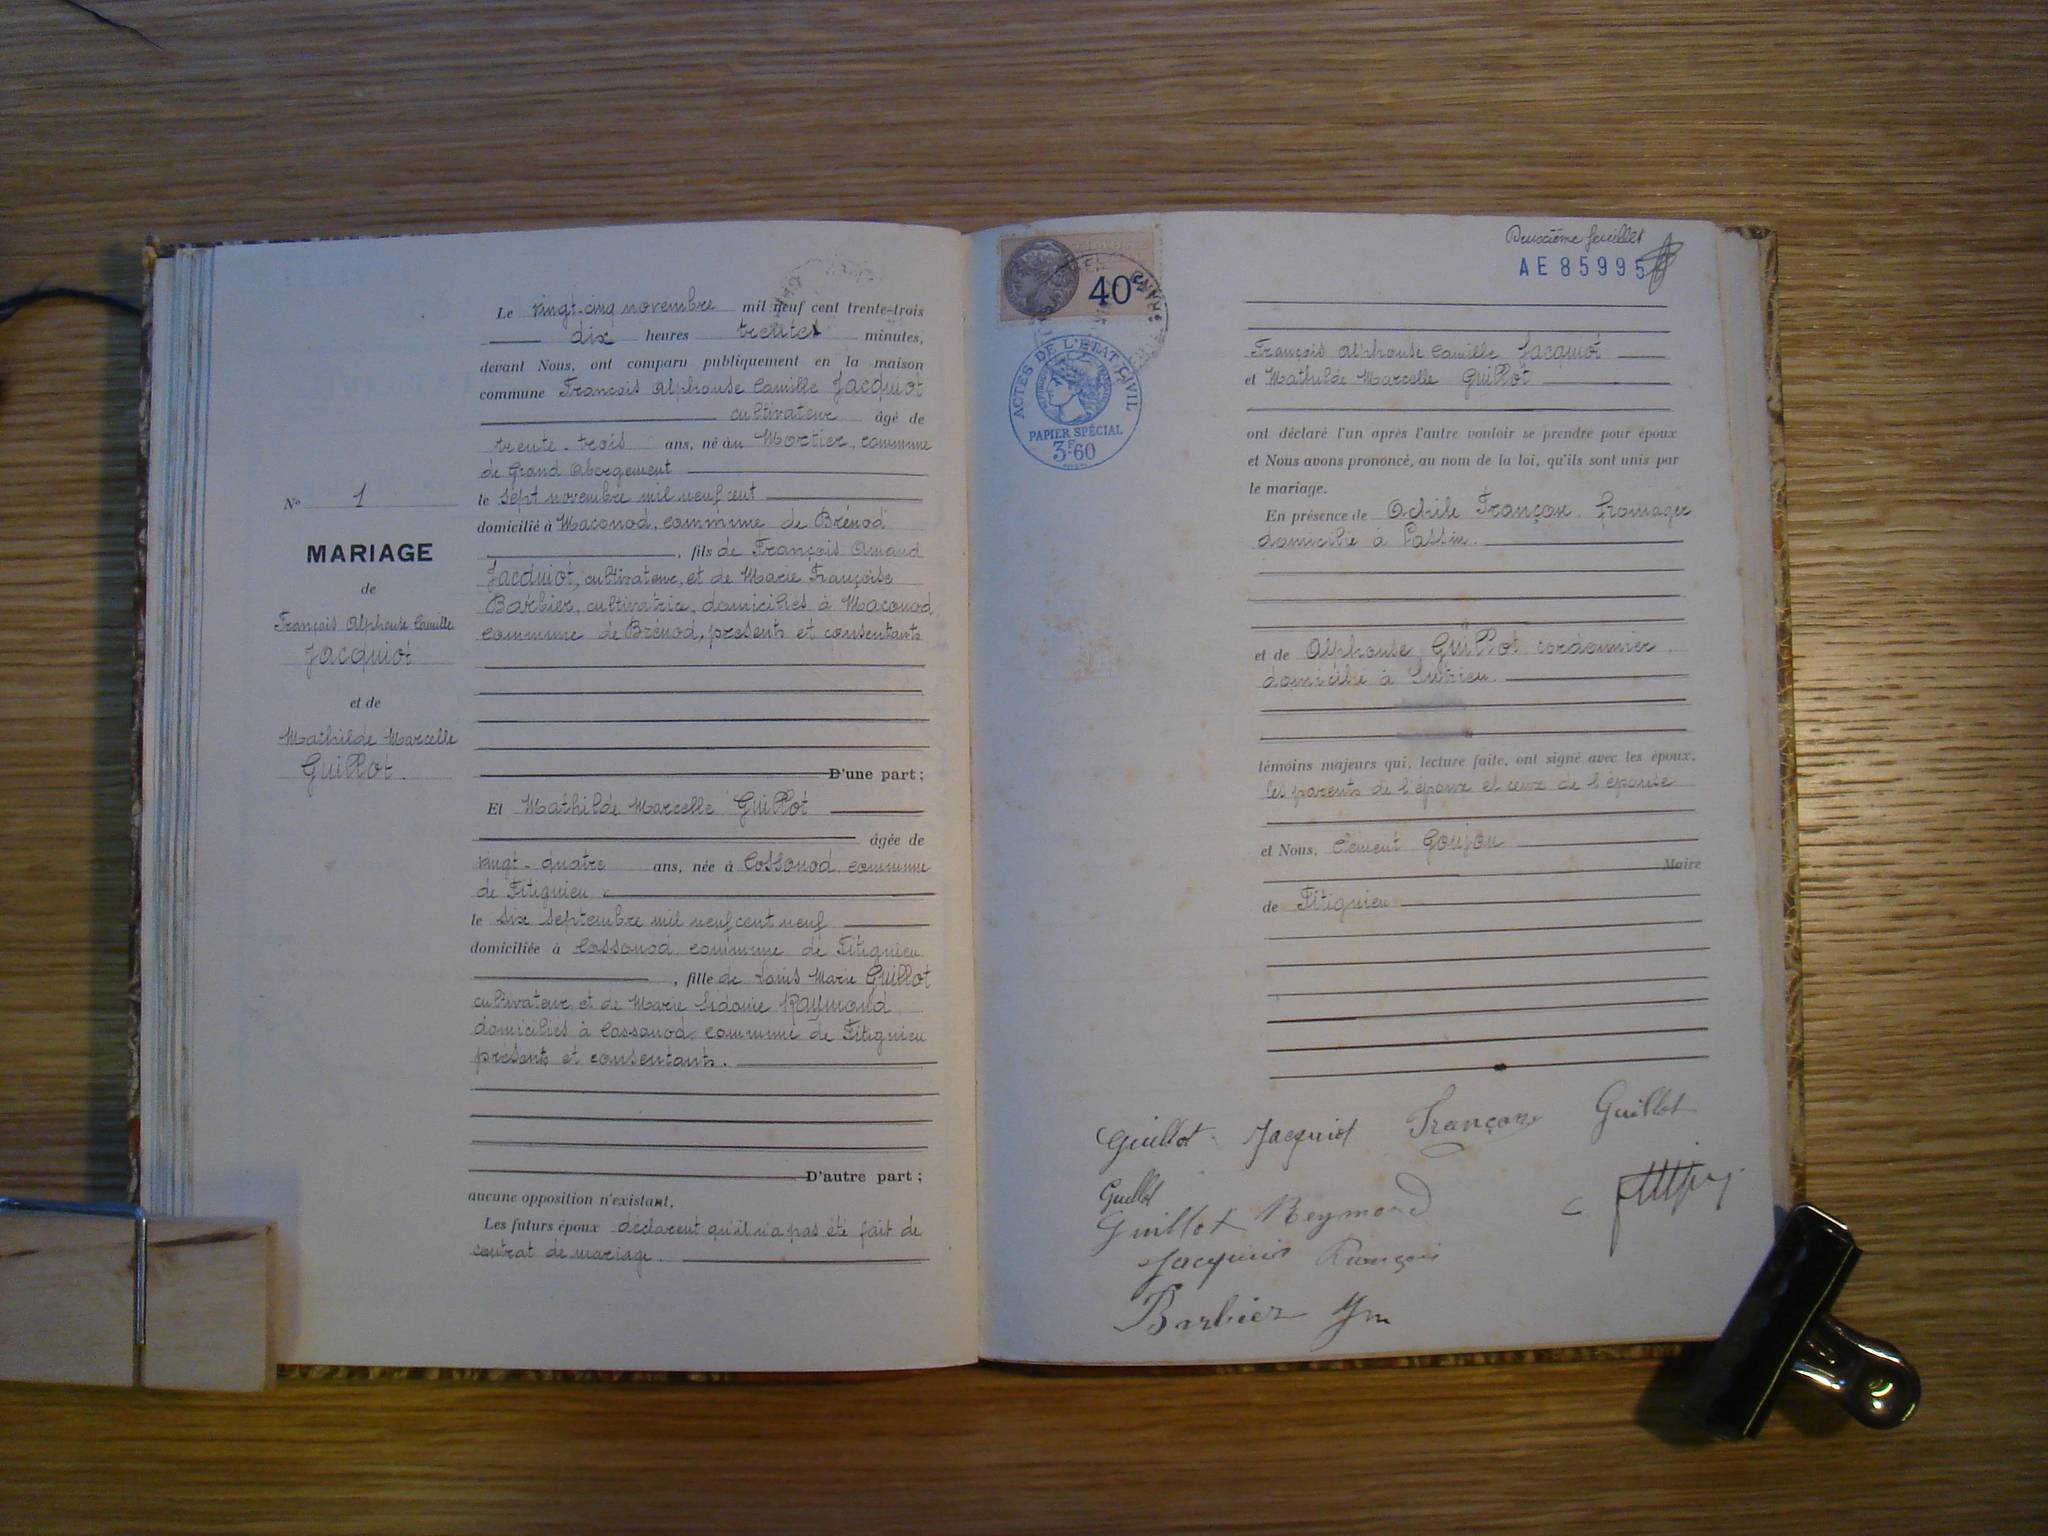 Le vingt-cinq novembre mil neuf cent trente-trois
dix heures trente minutes,
devant Nous, ont comparu publiquement en la maison
commune François Alphonse Camille Jacquiot
cultivateur âgé de
trente-trois ans, né au Mortier, commune
de Grand Abergement
le sept novembre mil neuf cent
domicilié à Maconod, commune de Brénod
, fils de François Amand
Jacquiot, cultivateur, et de Marie Françoise
Barbier, cultivatrice, domiciliés à Maconod
commune de Brénod, présents et consentants
D'une part ;
Et Mathilde Marcelle Guillot
âgée de
vingt-quatre ans, née à Cossonod, commune
de Fitignieu
le six septembre mil neuf cent neuf
domiciliée à Cossonod, commune de Fitignieu
, fille de Louis Marie Guillot
cultivateur et de Marie Sidonie Raymond
domiciliés à Cossonod commune de Fitignieu
présents et consentants.
D'autre part ;
aucune opposition n'existant,
Les futurs époux déclarent qu'il n'a pas été fait de
contrat de mariage.
N° 1
MARIAGE
de
François Alphonse Camille
Jacquiot
et de
Mathilde Marcelle
Guillot.
40c
ACTES DE L'ETAT CIVIL
PAPIER SPÉCIAL
3F60
Deuxième feuillet
AE 85995
François Alphonse Camille Jacquiot
et Mathilde Marcelle Guillot
ont déclaré l'un après l'autre vouloir se prendre pour époux
et Nous avons prononcé, au nom de la loi, qu'ils sont unis par
le mariage.
En présence de Achile Françon fromager
domicilié à Passin.
et de Alphonse Guillot cordonnier
domicilié à Sutrieu.
témoins majeurs qui, lecture faite, ont signé avec les époux,
les parents de l'époux et ceux de l'épouse
et Nous, Clément Goujon
Maire
de Fitignieu
Guillot Jacquiot Françon Guillot
Guillot
Guillot Reymond
Jacquiot François
Barbier